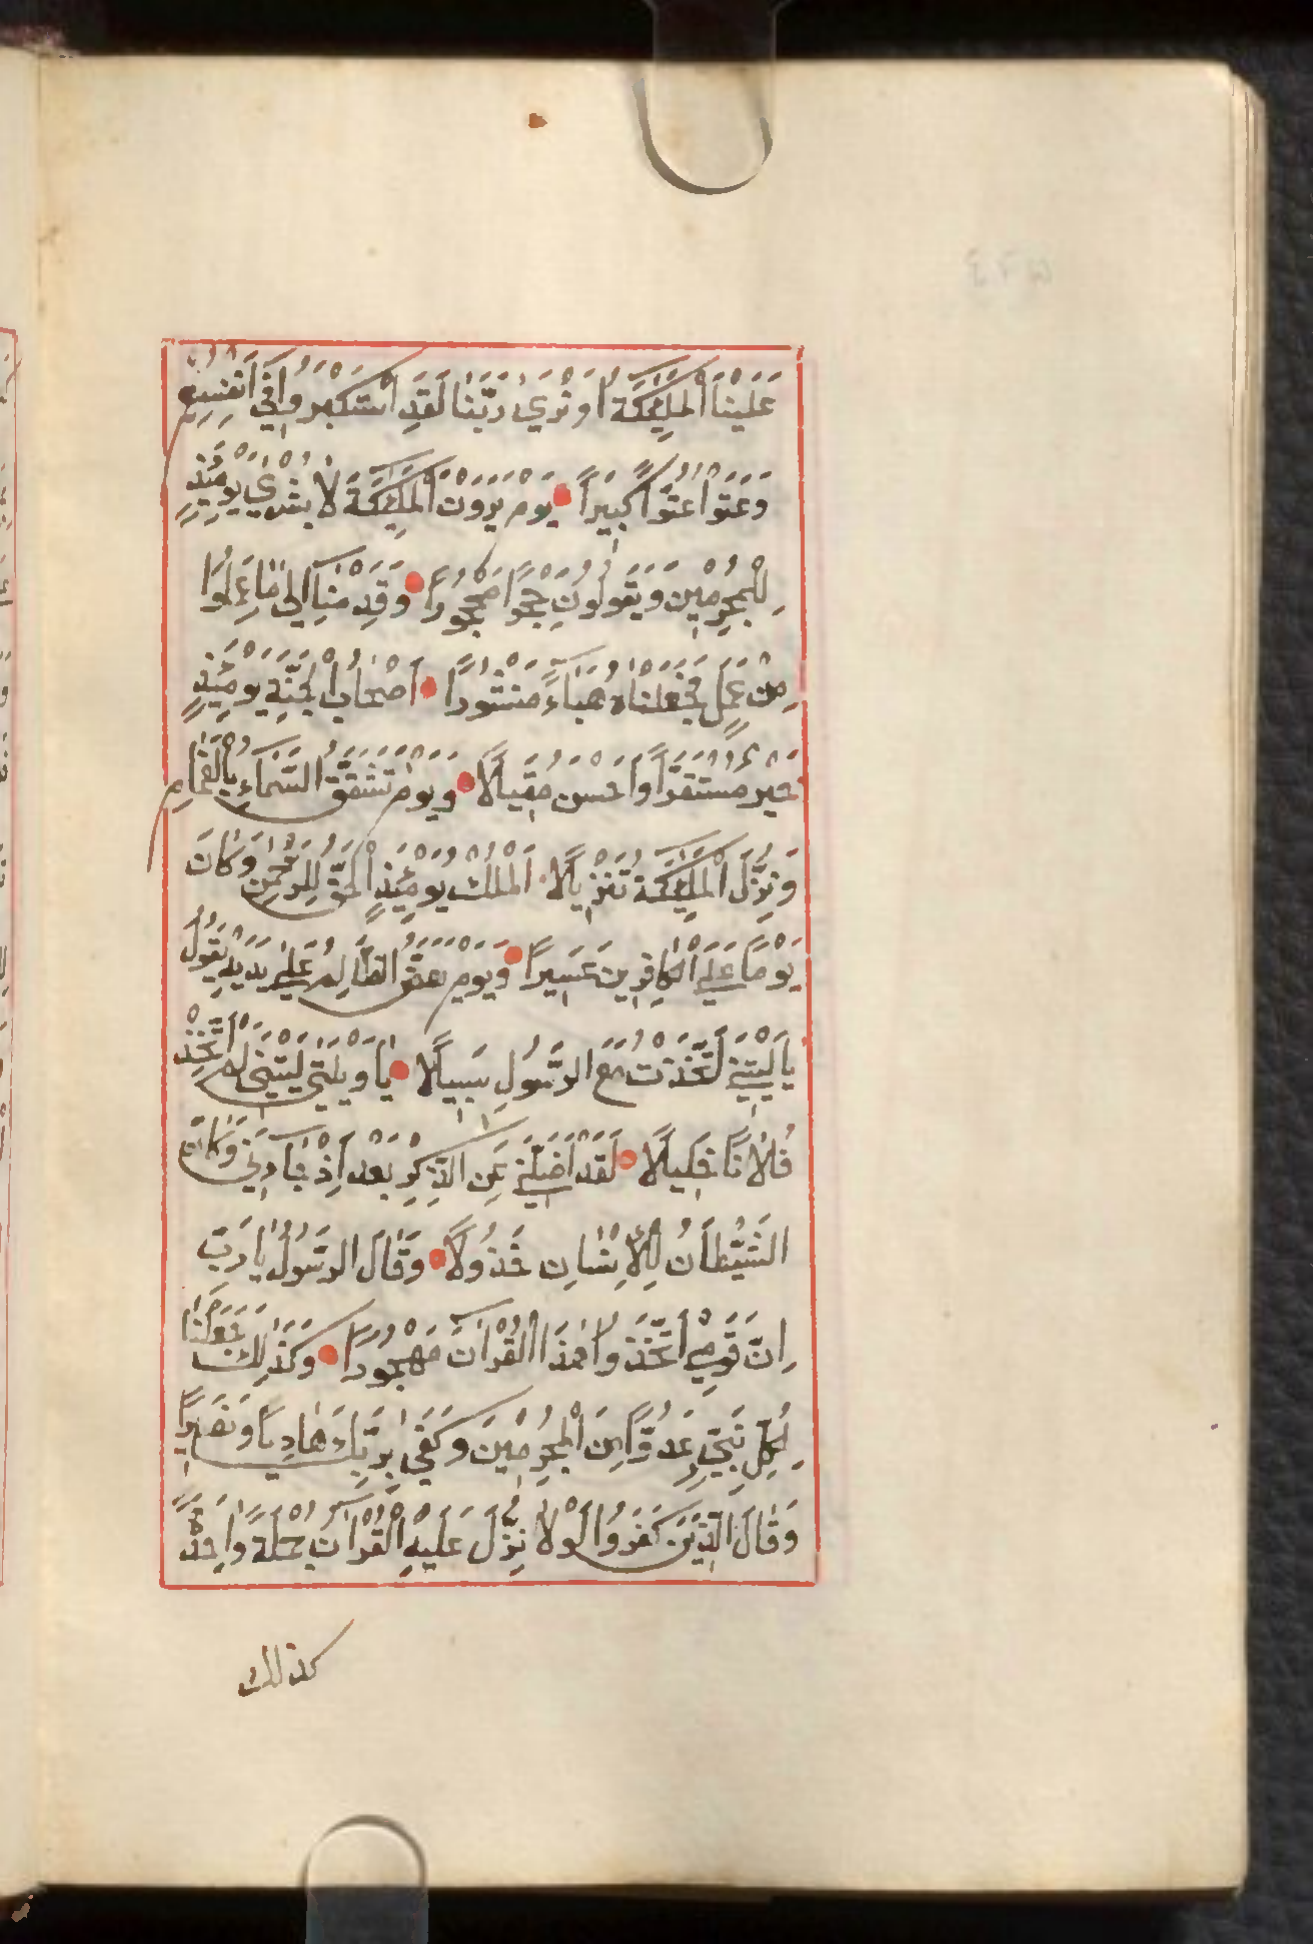 عَلَيْنَا الْمَلٰٓئِكَةُ اَوْ نَرٰى رَبَّنَا لَقَدِ اسْتَكْبَرُوا فِي اَنْفُسِهِمْ
وَعَتَوْا عُتُوًّا كَبِيرًا يَوْمَ يَرَوْنَ الْمَلٰٓئِكَةَ لَا بُشْرٰي يَوْمَئِذٍ
لِلْمُجْرِمِينَ وَيَقُولُونَ حِجْرًا مَحْجُورًا وَقَدِمْنَآ اِلٰى مَا عَمِلُوا
مِنْ عَمَلٍ فَجَعَلْنَاهُ هَبَآءً مَنْثُورًا اَصْحَابُ الْجَنَّةِ يَوْمَئِذٍ
خَيْرٌ مُسْتَقَرًّا وَاَحْسَنُ مَقِيلًا وَيَوْمَ تَشَقَّقُ السَّمَآءُ بِالْغَمَامِ
وَنُزِّلَ الْمَلٰٓئِكَةُ تَنْزِيلًا اَلْمُلْكُ يَوْمَئِذٍ الْحَقُّ لِلرَّحْمٰنِ وَكَانَ
يَوْمًا عَلَي الْكَافِرِينَ عَسِيرًا وَيَوْمَ يَعَضُّ الظَّالِمُ عَلٰي يَدَيْهِ يَقُولُ
يَا لَيْتَنِي اتَّخَذْتُ مَعَ الرَّسُولِ سَبِيلًا يَا وَيْلَتٰى لَيْتَنِي لَمْ اَتَّخِذْ
فُلَانًا خَلِيلًا لَقَدْ اَضَلَّنِي عَنِ الذِّكْرِ بَعْدَ اِذْ جَآءَنِي وَكَانَ
الشَّيْطَانُ لِلْاِنْسَانِ خَذُولًا وَقَالَ الرَّسُولُ يَا رَبِّ
اِنَّ قَوْمِي اتَّخَذُوا هٰذَا الْقُرْاٰنَ مَهْجُورًا وَكَذٰلِكَ جَعَلْنَا
لِكُلِّ نَبِيٍّ عَدُوًّا مِنَ الْمُجْرِمِينَ وَكَفٰي بِرَبِّكَ هَادِيًا وَنَصِيرًا
وَقَالَ الَّذِينَ كَفَرُوا لَوْلَا نُزِّلَ عَلَيْهِ الْقُرْاٰنُ جُمْلَةً وَاحِدَةً
كذلك